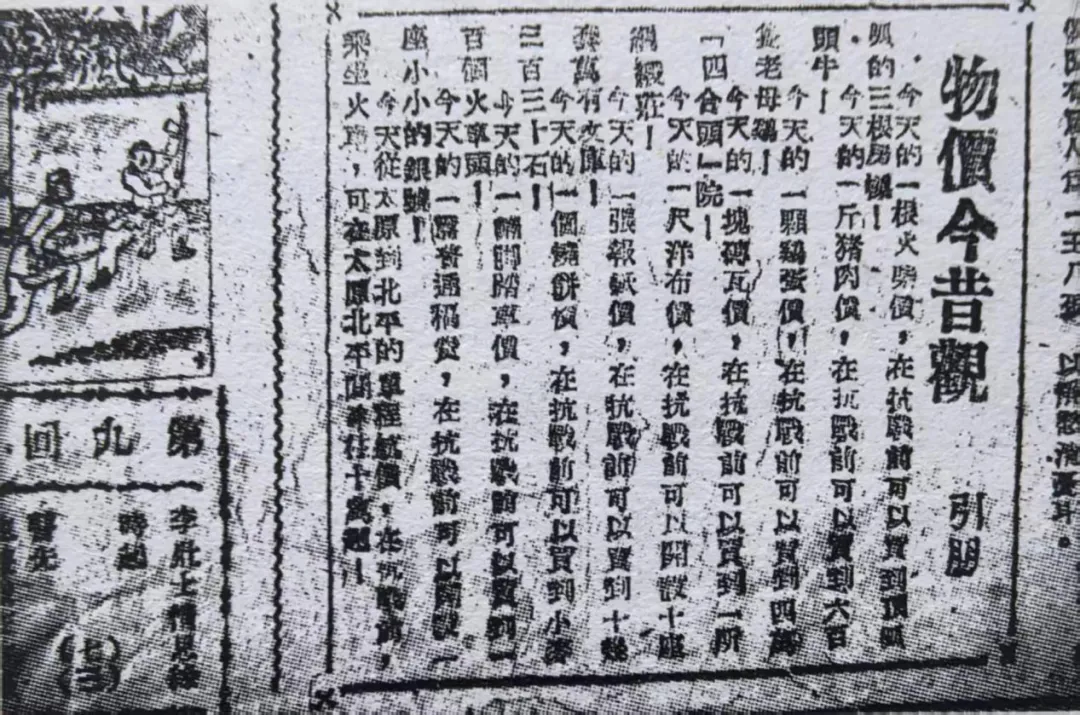 物價今昔觀
引朋
今天的一根火柴價，在抗戰前可以買到頂呱
呱的三根房樑！
今天的一斤猪肉價，在抗戰前可以買到六百
頭牛！
今天的一顆鷄蛋價，在抗戰前可以買到四萬
隻老母鷄！
今天的一塊磚瓦價，在抗戰前可以買到一所
「四合頭」院！
今天的一尺洋布價，在抗戰前可以開設十座
綢緞莊！
今天的一張報紙價，在抗戰前可以買到十幾
套萬有文庫！
今天的一個燒餅價，在抗戰前可以買到小麥
三百三十石！
今天的一輛脚踏車價，在抗戰前可以買到一
百個火車頭！
今天的一篇普通稿費，在抗戰前可以開設一
座小小的銀號！
今天從太原到北平的單程航價，在抗戰前，
乘坐火車，可在太原北平間來往十萬趟！
第九回
李壯士情見